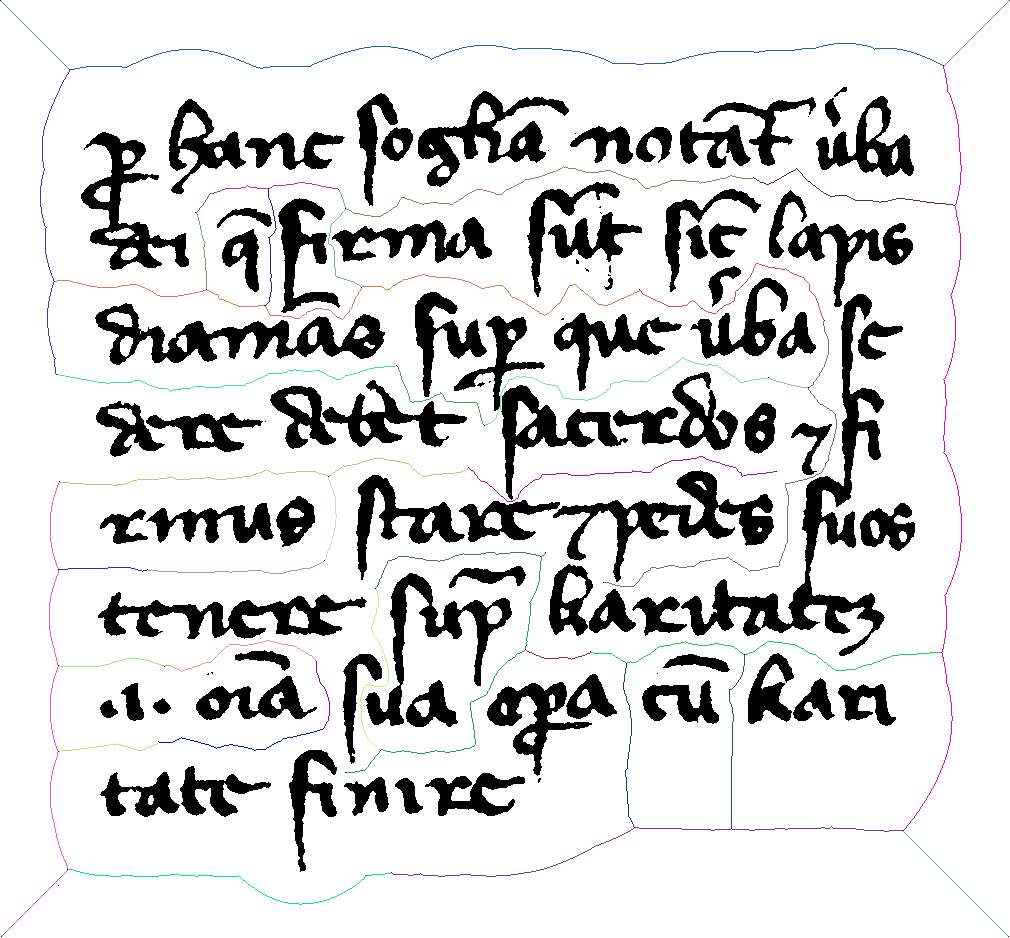 ꝓ hanc sogłiā notāt̄ ũba
dei q̄ firma sūt sic̄ lapis
diamās suꝑ que ũba se
dere debet sacerdos ⁊ fi
rmus stare ⁊ pedes suos
tenere sup̄ karitateꝫ
.i. oīa sua oꝑa cū kari
tate finire